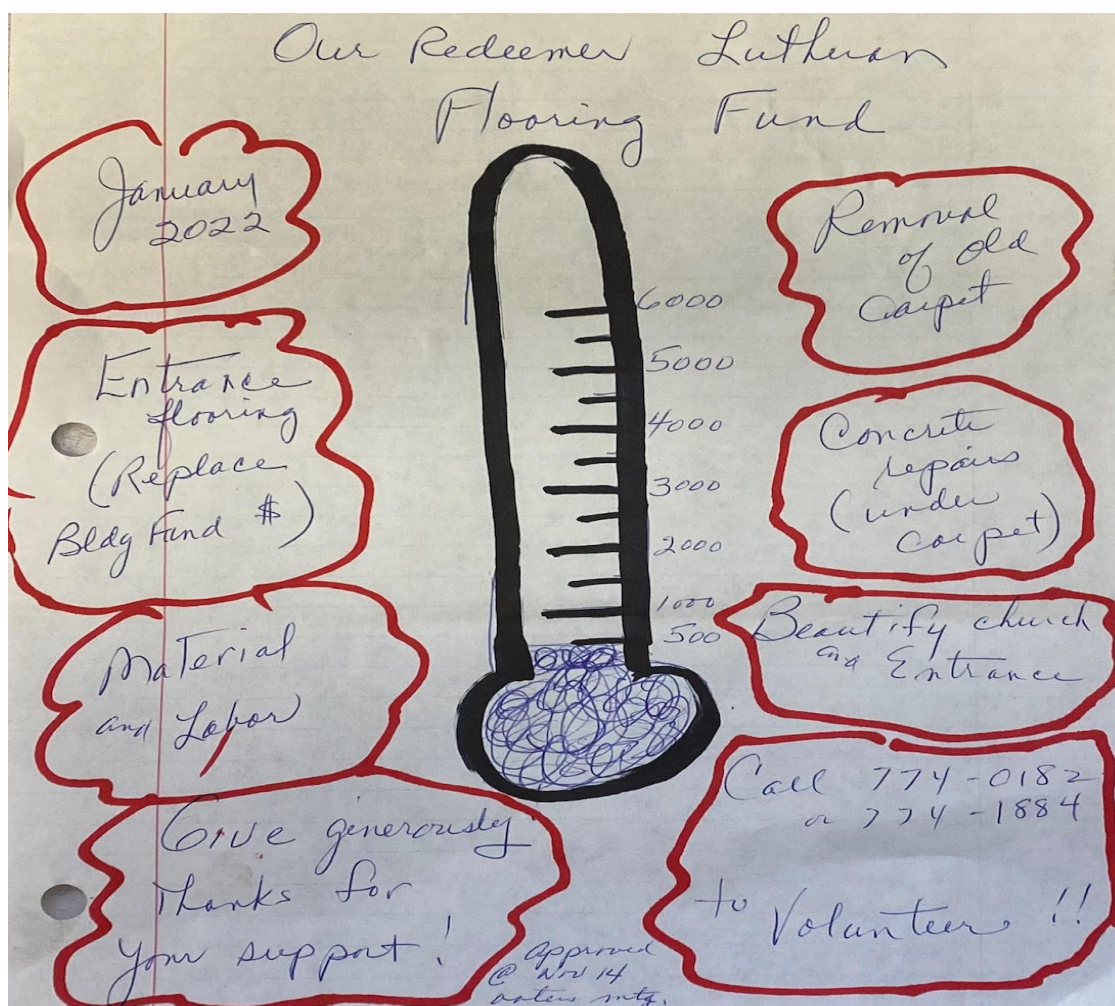 Our Redeemer Lutheran
Flooring Fund
January
2022
Entrance
flooring
(Replace
Bldg Fund $)
Material
and Labor
Give generously
Thanks for
your support!
6000
5000
4000
3000
2000
1000
500
Removal
of old
Carpet
Concrete
repairs
(under
carpet)
Beautify church
and Entrance
Call 774-0182
or 774-1884
to Volunteer!!
Approved
@ Nov 14
voters mtg.